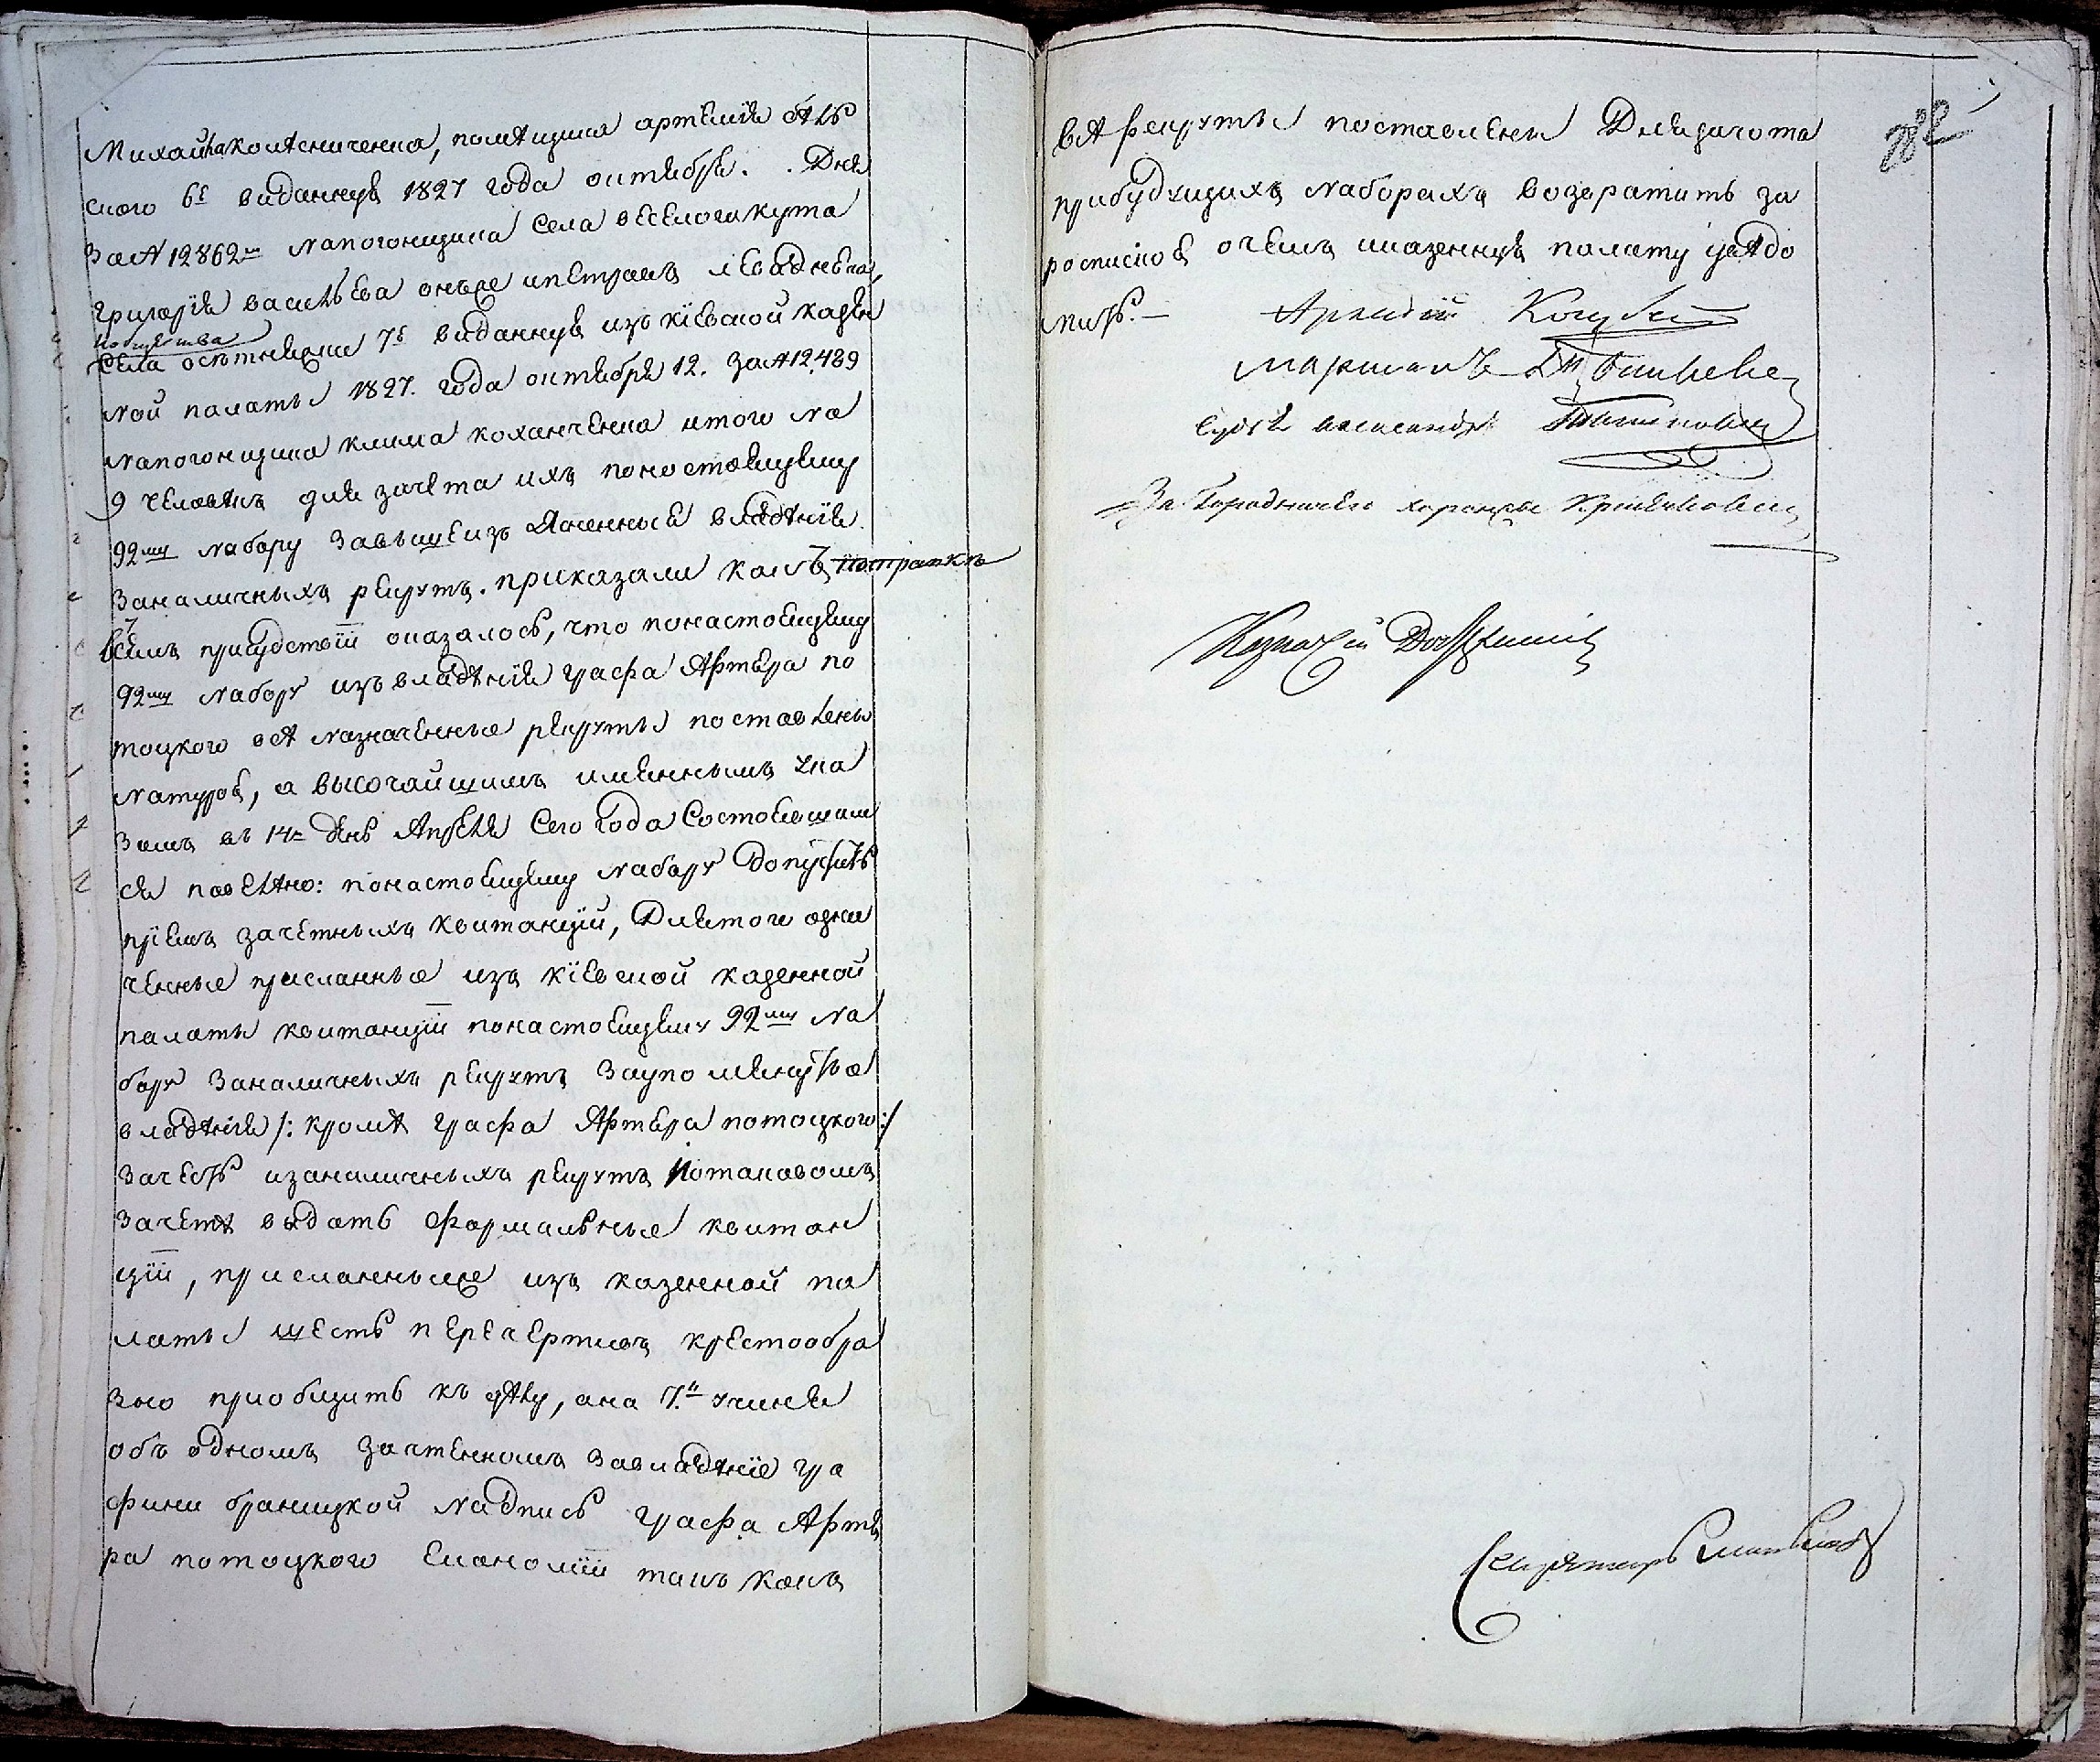 Михайла колесниченка, помещика артемія
ского 6е виданную 1827 года октября. Дня
За № 12862м на погонщика Села веселогикута
григорія васильева онъже ипетрашъ
села осытняшки 7е виданную изъ кіевской казен
ной палаты 1827. года октября 12. За № 12,489
на погонщика клима коханченка итого на
9 человекъ для зачета ихъ понастоящему
92му набору завышеизъясненные владенія
заналичныхъ рекрутъ. приказали какъ
всемъ присудствіи оказалось, что понастоящему
92му набору изъ владенія графа Артура по
тоцкого все назначенные рекруты поставлены
натурою, а высочайшимъ именнымъ ука
зомъ въ 14й день Апреля Сего Года Состоявшим
ся повелено: понастоящему набору допустить
пріемъ зачетныхъ квитанцій, Для того озна
ченные присланные изъ кіевской казенной
палаты квитанціи понастоящему 92му на
бору Заналичныхъ рекрутъ Заупомянутые
владенія /: кроме графа Артура потоцкого :/
зачесть изаналичныхъ рекрутъ Ипотаковомъ
зачете выдать формальные квитан
ціи, присланныеже изъ казенной па
латы шесть перечертивъ крестообра
зно приобщить къ делу, ана 7.й учиня
объ одномъ зачтенномъ завладеніе гра
фини браницкой надпись графа Арту
ра потоцкого Економіи такъ какъ
282
все рекруты поставлены Для зачота
прибудущихъ наборахъ возвратить за
роспискою очемъ иказенную палату уведо
мить. —
Аркадій Кочубей
маршалъ
Судья александръ
За Городничего хорунжы
Казначей
Секретарь